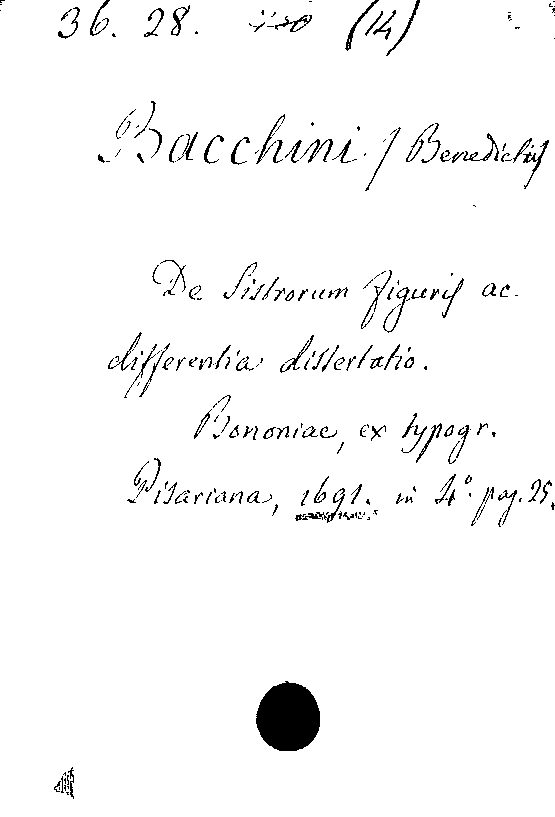 36. 28. (14)
Bacchini / Benedictus
De Sistrorum figuris ac.
differentia dissertatio.
Bononiae, ex typogr.
Pisariana, 1691. in 4º. pag. 25.